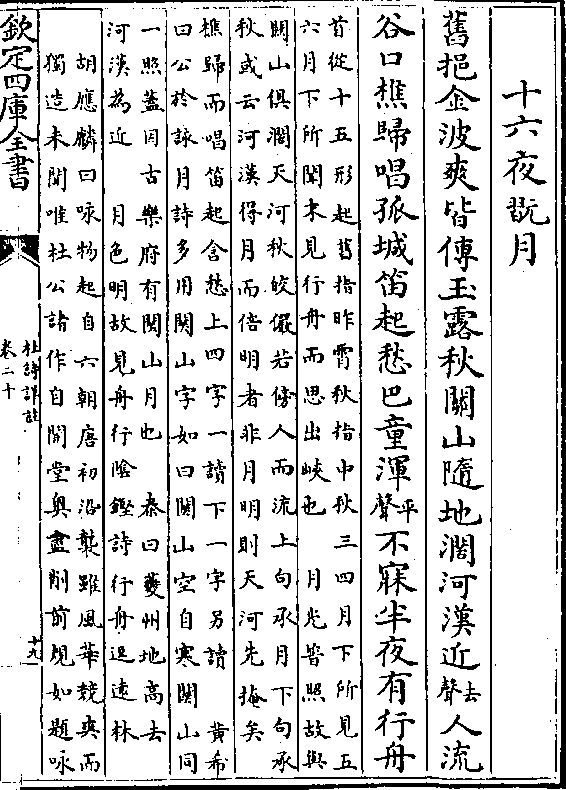 十六夜翫月
舊挹金波爽皆傳玉露秋關山隨地濶河漢近去聲人流
谷口樵歸唱孤城笛起愁巴童渾平聲不寐半夜有行舟
首從十五形起舊指昨霄秋指中秋三四月下所見五
六月下所聞末見行舟而思出峽也　月光皆照故與
關山俱濶天河秋皎儼若傍人而流上句承月下句承
秋或云河漢得月而倍明者非月明則天河先掩矣
樵歸而唱笛起含愁上四字一讀下一字另讀　黄希
曰公於詠月詩多用關山字如曰關山空自寒關山同
一照蓋因古樂府有關山月也　泰曰夔州地高去
河漢為近　月色明故見舟行陰鏗詩行舟逗遠林
胡應麟曰咏物起自六朝唐初沿襲雖風華競爽而
獨造未聞唯杜公諸作自開堂奥盡削前規如題咏
欽定四庫全書
杜詩詳註
卷二十
十九